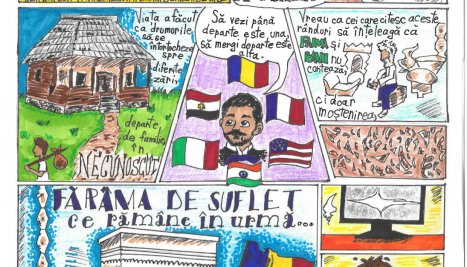 Viața a făcut
ca drumurile
să se
întortocheze
spre
diferite
zări
departe
de familie
în
NECUNOSCUT
Să vezi până
departe este una,
să mergi departe este
alta.
Vreau ca cei care citesc aceste
rânduri să înțeleagă că
FAIMA și
BANII nu
contează,
ci doar
moștenirea
FĂRÂMA DE SUFLET
ce rămâne în urmă...